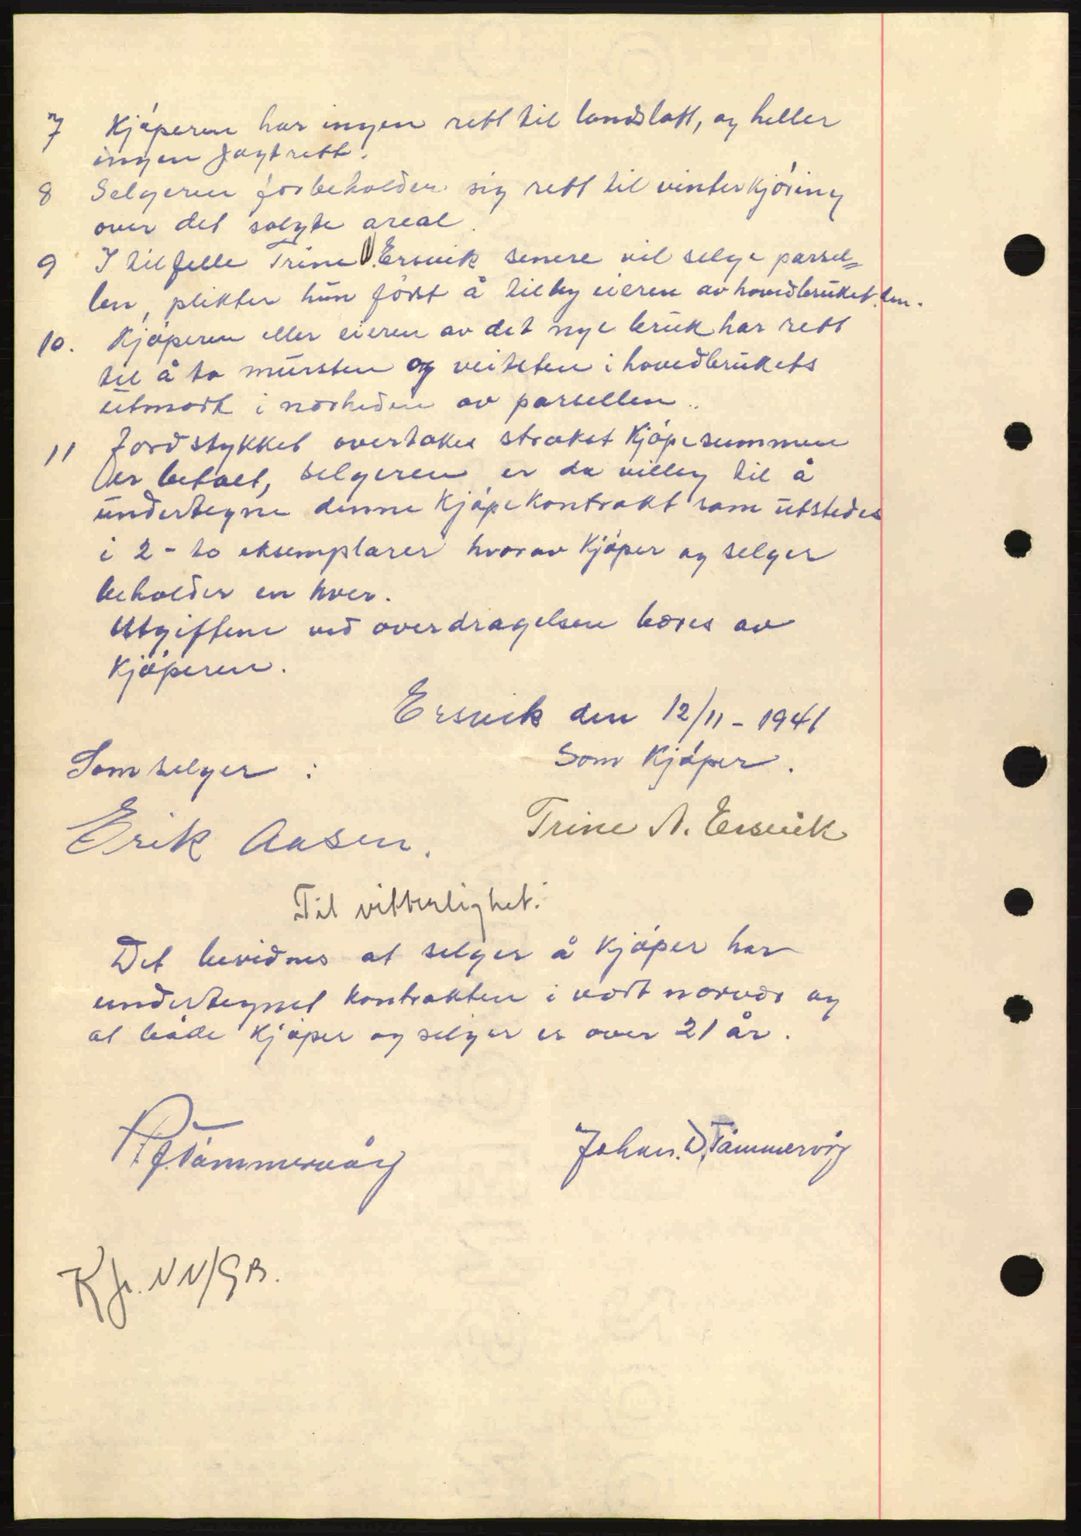 7 Kjøperen har ingen rett til landslott, og heller
ingen jagtrett.
8 Selgeren forbeholder sig rett til vinterkjøring
over det solgte areal.
9 I tilfelle Trine A. Ersvik senere vil selge parsel=
len, plikter hun først å tilby eieren av hovedbruket den.
10. Kjøperen eller eieren av det nye bruk har rett
til å ta mursten og veisten i hovedbrukets
utmark i nærheden av parsellen.
11 Jordstykket overtakes strakst kjøpesummen
er betalt, selgeren er da villig til å
undertegne denne kjøpekontrakt som utstedes
i 2 - to eksemplarer hvorav kjøper og selger
beholder en hver.
Utgiftene ved overdragelsen bæres av
kjøperen.
Ersvik den 12/11 - 1941
Som selger :
Som Kjøper.
Erik Aasen.
Trine A. Ersvik
Til vitterlighet:
Det bevidnes at selger å kjøper har
undertegnet kontrakten i vort nærvær og
at både kjøper og selger er over 21 år.
Tømmervåg
Johan. D. Tømmervåg
Kfr. NN/GB.